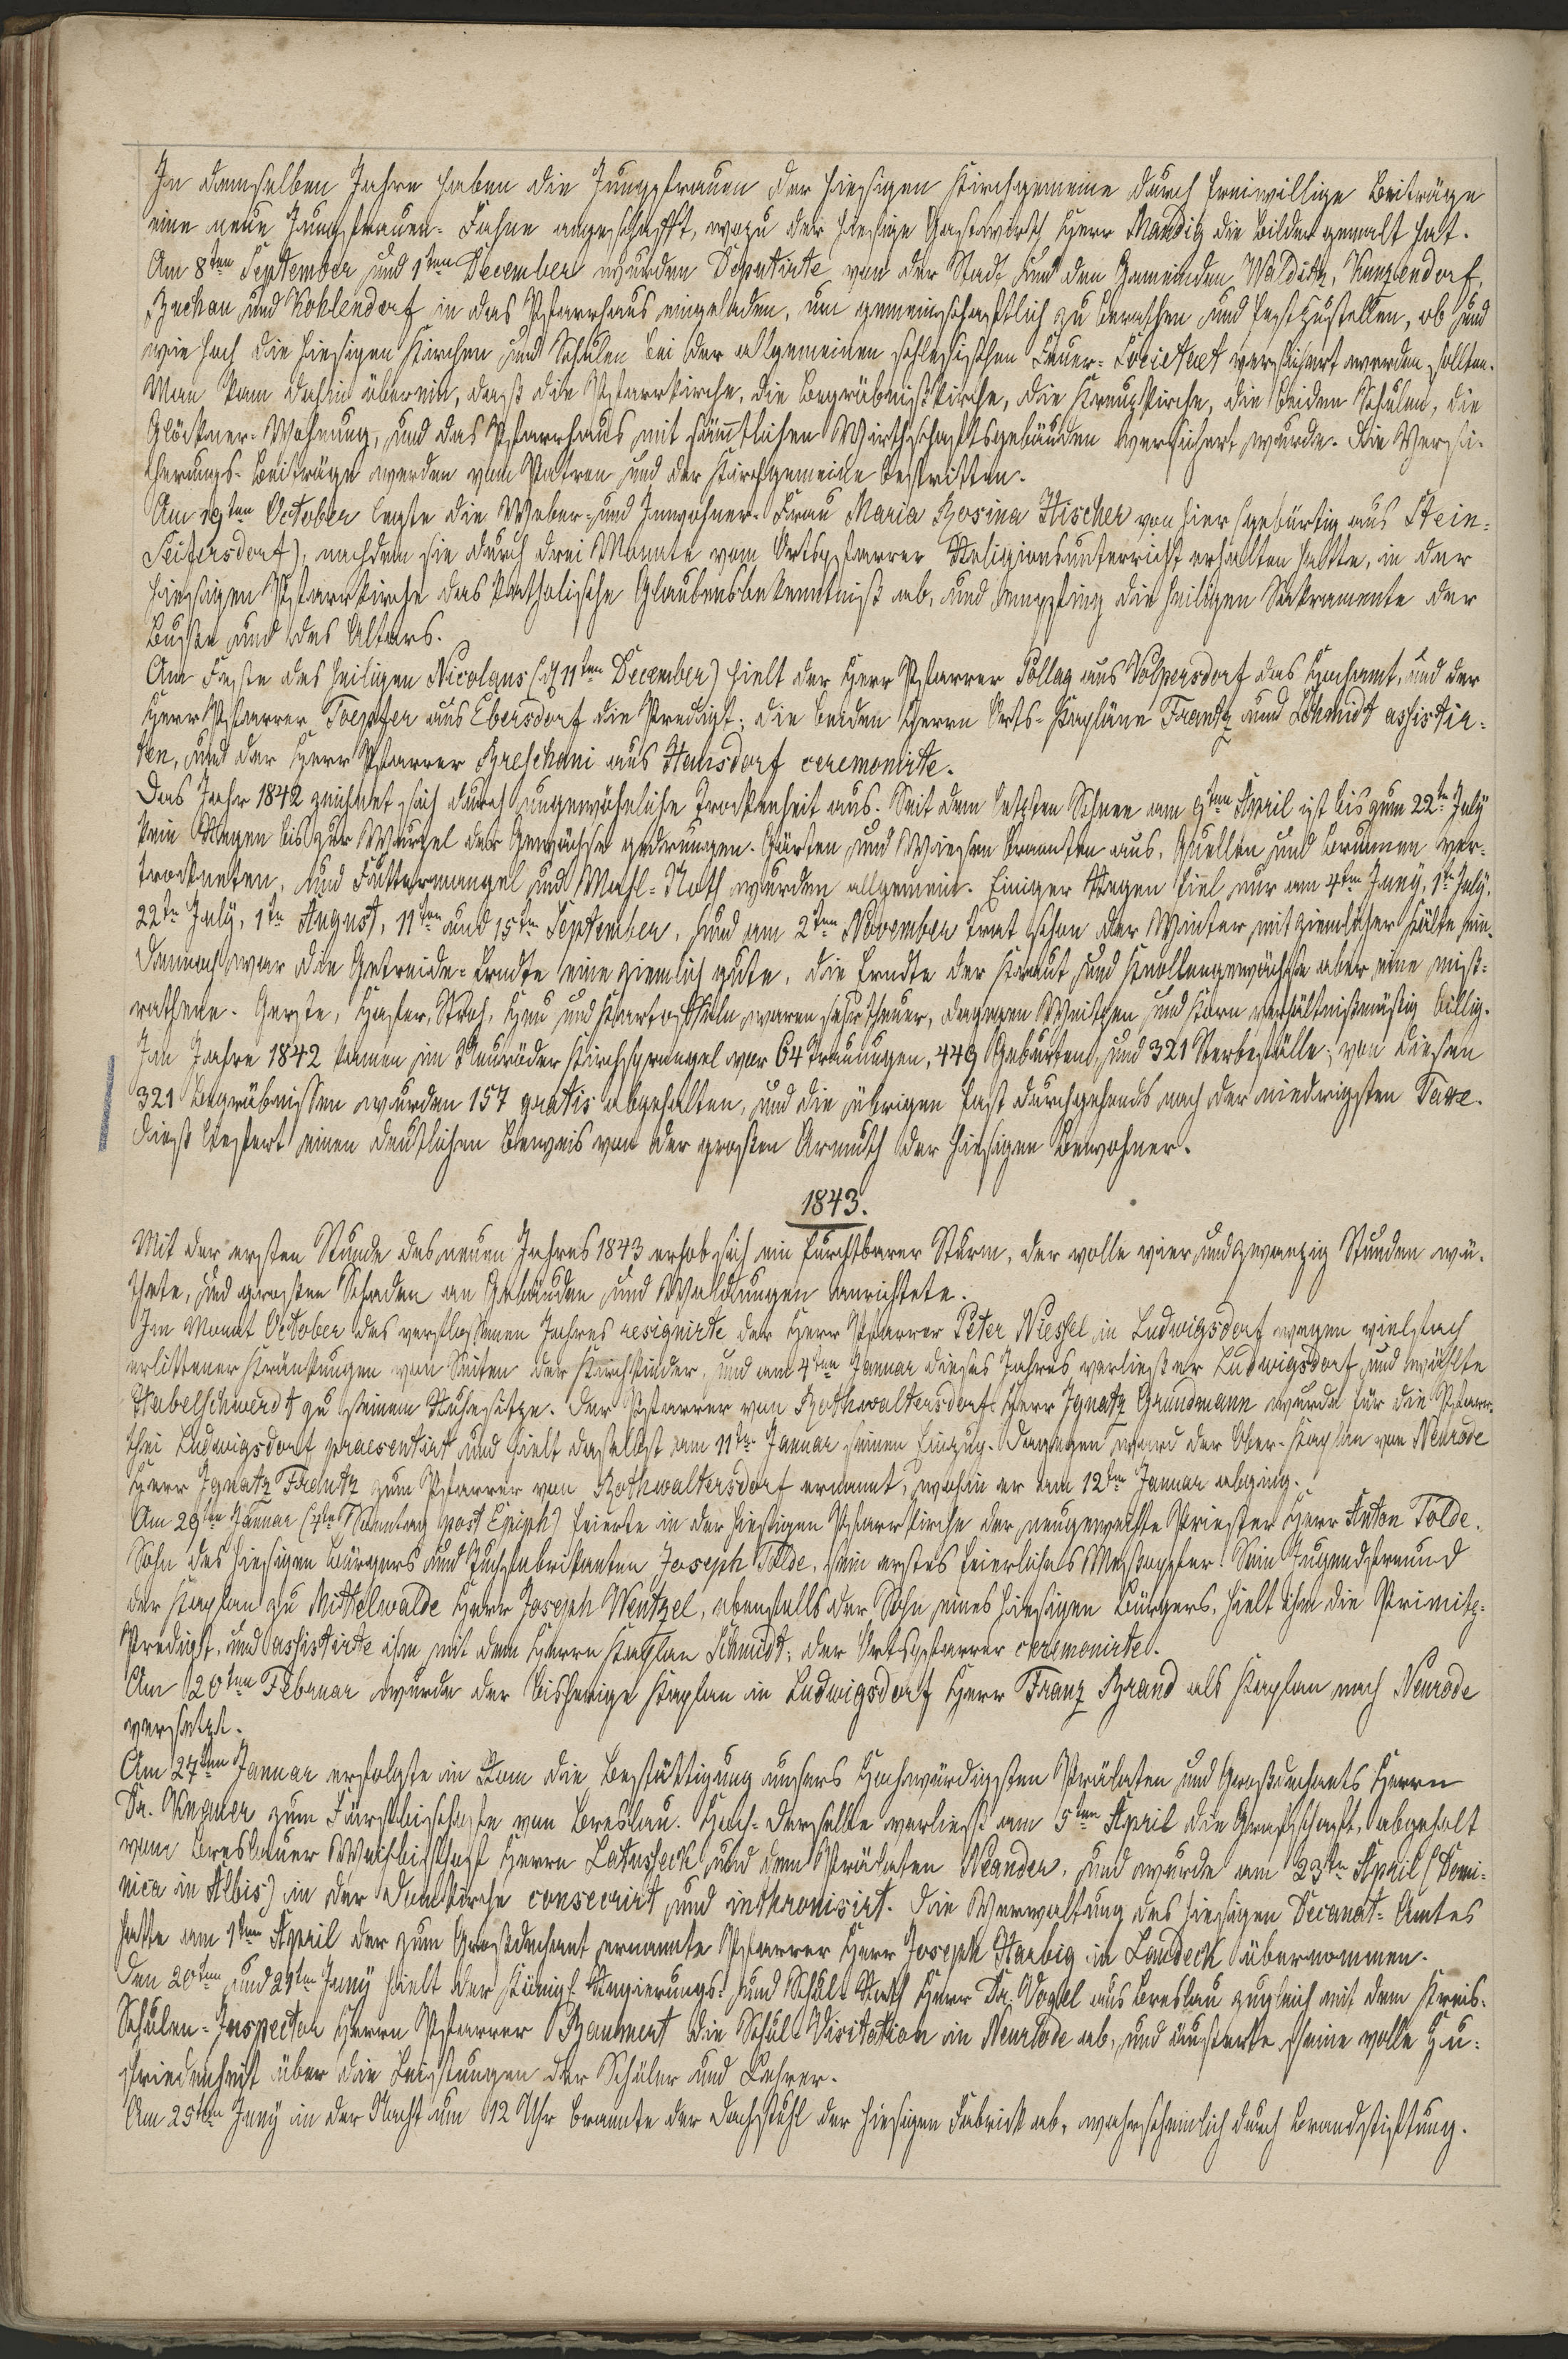 In demselben Jahre haben die Jungfrauen der hiesigen Kirchgemeine durch freiwillige Beiträge
eine neue Jungfrauen-Fahne angeschafft, wozu der hiesige Gastwirth Herr Mandig die Bilder gemalt hat.
Am 8ten September und 1ten December wurden Deputirte von der Stadt und den Gemeinden Walditz, Kunzendorf,
Buchau und Kohlendorf in das Pfarrhaus eingeladen, um gemeinschaftlich zu berathen und festzustellen, ob und
wie hoch die hiesigen Kirchen und Schulen bei der allgemeinen schlesischen Feuer-Societaet versichert werden sollten.
Man kam dahin überein, daß die Pfarrkirche, die Begräbnißkirche, die Kreuzkirche, die beiden Schulen, die
Glöckner-Wohnung, und das Pfarrhaus mit sämtlichen Wirthschaftsgebäuden versichert wurde. Die Versi-
cherungs-Beiträge werden vom Patron und der Kirchgemeine bestritten.
Am 19ten October legte die Weber- und Inwohner-Frau Maria Rosina Hischer von hier (gebürtig aus Stein-
Seifersdorf), nachdem sie durch drei Monate vom Ortspfarrer Religionsunterricht erhalten hatte, in der
hiesigen Pfarrkirche das katholische Glaubensbekenntniß ab, und empfing die heiligen Sakramente der
Buße und des Altars.
Am Feste des heiligen Nicolaus (d 11ten December) hielt der Herr Pfarrer Pollag aus Volpersdorf das Hochamt, und der
Herr Pfarrer Toepfer aus Ebersdorf die Predigt; die beiden Herrn Orts-Kapläne Frantz und Schmidt assistir-
ten, und der Herr Pfarrer Breschani aus Hausdorf ceremonirte.
Das Jahr 1842 zeichnet sich durch ungewöhnliche Trockenheit aus. Seit dem letzten Schnee am 9ten April ist bis zum 22ten July
kein Regen bis zur Wurzel der Gewächse gedrungen. Gärten und Wiesen brannten aus, Quellen und Brunnen ver-
trockneten, und Futtermangel und Mahl-Noth wurden allgemein. Einiger Regen fiel nur am 4ten Juny, 1ten July,
22ten July, 1ten August, 11ten und 15ten September, und am 2ten November trat schon der Winter mit ziemlicher Kälte ein.
Dennoch war die Getreide-Erndte eine ziemlich gute, die Erndte der Kraut und Knollengewächse aber eine miß-
rathene. Gerste, Hafer, Stroh, Heu und Kartoffeln waren sehr theuer, dagegen Weitzen und Korn verhältnißmäßig billig.
Im Jahre 1842 kamen im Neuroder Kirchsprengel vor 64 Trauungen, 449 Geburten, und 321 Sterbefälle; von diesen
321 Begräbnissen wurden 157 gratis abgehalten, und die übrigen fast durchgehends nach der niedrigsten Taxe.
Dieß liefert einen deutlichen Beweis von der großen Armuth der hiesigen Bewohner.
1843.
Mit der ersten Stunde des neuen Jahres 1843 erhob sich ein furchtbarer Sturm, der volle vier und zwanzig Stunden wü-
thete, und großen Schaden an Gebäuden und Waldungen anrichtete.
Im Monat October des verflossenen Jahres resignirte der Herr Pfarrer Peter Niessel in Ludwigsdorf wegen vielfach
erlittener Kränkungen von Seiten der Kirchkinder, und am 4ten Januar dieses Jahres verließ er Ludwigsdorf und wählte
Habelschwerdt zu seinem Ruhesitze. Der Pfarrer von Rothwaltersdorf Herr Ignatz Grundmann wurde für die Pfarr-
thei Ludwigsdorf praesentirt und hielt daselbst am 11ten Januar seinen Einzug. Dagegen ward der Ober-Kaplan von Neurode
Herr Ignatz Frantz zum Pfarrer von Rothwaltersdorf ernannt, wohin er am 12ten Januar abging.
Am 29ten Januar (4ten Sonntag post Epiph) feierte in der hiesigen Pfarrkirche der neugeweihte Priester Herr Anton Tölde,
Sohn des hiesigen Bürgers und Tuchfabrikanten Joseph Tölde, sein erstes feierliches Meßopfer. Sein Jugendfreund
der Kaplan zu Mittelwalde Herr Joseph Wentzel, ebenfalls der Sohn eines hiesigen Bürgers, hielt ihm die Primitz-
Predigt, und assistirte ihm mit dem Herrn Kaplan Schmidt; der Ortspfarrer ceremonirte.
Am 20ten Februar wurde der bisherige Kaplan in Ludwigsdorf Herr Franz Brand als Kaplan nach Neurode
versetzt.
Am 27ten Januar erfolgte in Rom die Bestättigung unsers Hochwürdigsten Prälaten und Großdechants Herrn
Dr. Knauer zum Fürstbischofe von Breslau. Hoch-Derselbe verließ am 5ten April die Grafschaft, abgeholt
vom Breslauer Weihbischof Herrn Latusseck und dem Prälaten Neander, und wurde am 23ten April (Domi-
nica in Albis) in der Domkirche consecrirt und inthronisirt. Die Verwaltung des hiesigen Decanat-Amtes
hatte am 1ten April der zum Großdechant ernannte Pfarrer Herr Joseph Harbig in Landeck übernommen.
Den 20ten und 21ten Juny hielt der Königl Regierungs- und Schul-Rath Herr Dr. Vogel aus Breslau zugleich mit dem Kreis-
Schulen-Inspector Herrn Pfarrer Baumert die Schul-Visitation in Neurode ab, und äußerte seine volle Zu-
friedenheit über die Leistungen der Schüler und Lehrer.
Am 25ten Juny in der Nacht um 12 Uhr brannte der Dachstuhl der hiesigen Fabrick ab, wahrscheinlich durch Brandstiftung.